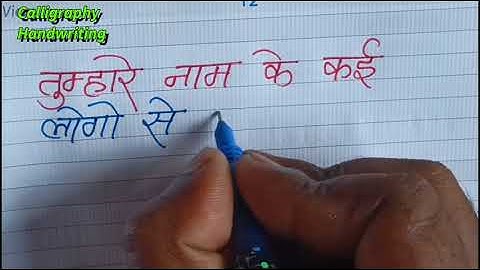 Calligraphy
Handwriting
12
तुम्हारे नाम के कई
लोगो से